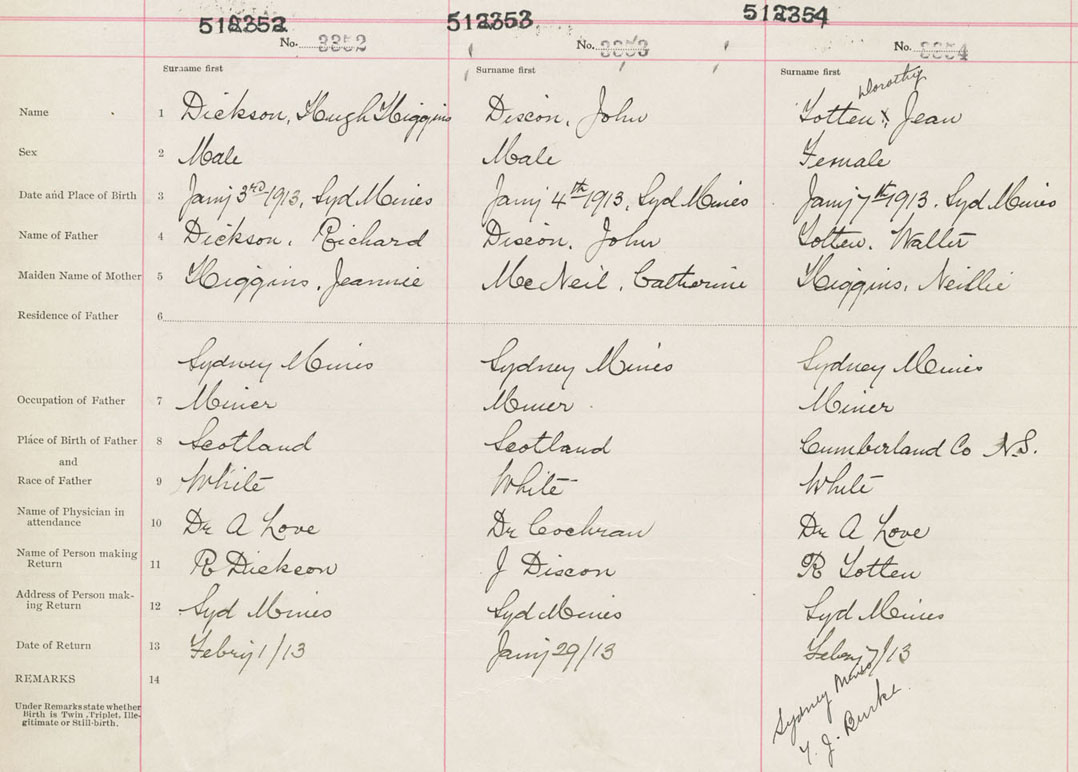 512352 512353 512354
No. 3352 No. 3353 No. 3354
Surname first Surname first Surname first
Dorothy
Name 1 Dickson, Hugh Higgins Discon, John Totten x Jean
Sex 2 Male Male Female
Date and Place of Birth 3 Jany 3rd 1913, Syd Mines Jany 4th 1913, Syd Mines Jany 7th 1913. Syd Mines
Name of Father 4 Dickson, Richard Discon, John Totten, Walter
Maiden Name of Mother 5 Higgins, Jeannie McNeil, Catherine Higgins, Neillie
Residence of Father 6
Sydney Mines Sydney Mines Sydney Mines
Occupation of Father 7 Miner Miner Miner
Place of Birth of Father 8 Scotland Scotland Cumberland Co N.S.
and
Race of Father 9 White White White
Name of Physician in
attendance 10 Dr A Love Dr Cochran Dr A Love
Name of Person making
Return 11 R Dickson J Discon R Totten
Address of Person mak-
ing Return 12 Syd Mines Syd Mines Syd Mines
Date of Return 13 Febry 1/13 Jany 29/13 Febry 7/13
REMARKS 14
Under Remarks state whether
Birth is Twin, Triplet, Ille-
gitimate or Still-birth.
Sydney Mines
J. Burke